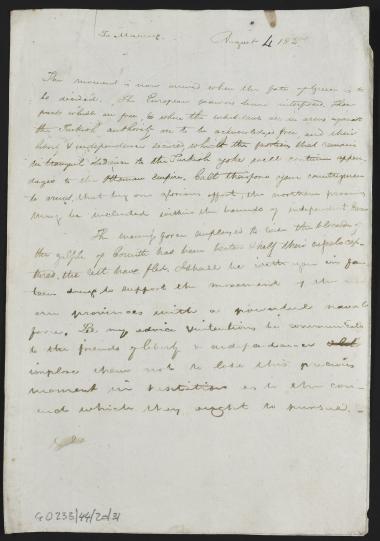 August 4 182
The moment is now arrived when the fate of Greece is to
be decided. The European powers have interfered, those
parts which are free, & where the inhabitants are in arms against
the Turkish authority are to be acknowledged free and their
& independence secured whilst the portions that remain
in tranquil obedience to the Turkish yoke will continue appen-
dages to the Ottoman empire. Call therefore your countrymen
to arms, that by one glorious effort, the northern provinces
may be included within the bounds of independent
The enemy's force employed to the blockade of
the gulph of Corinth had been beaten & half their ships cap-
tured, the rest have fled, I shall be with you in
days to support the movement of the
provinces with a powerful naval
force. Let my advice & intentions be communicated
to the friends of liberty & independence
implore them not to lose this precious
moment in hesitation as to the con-
duct which they ought to pursue.
GD233/44/20/31